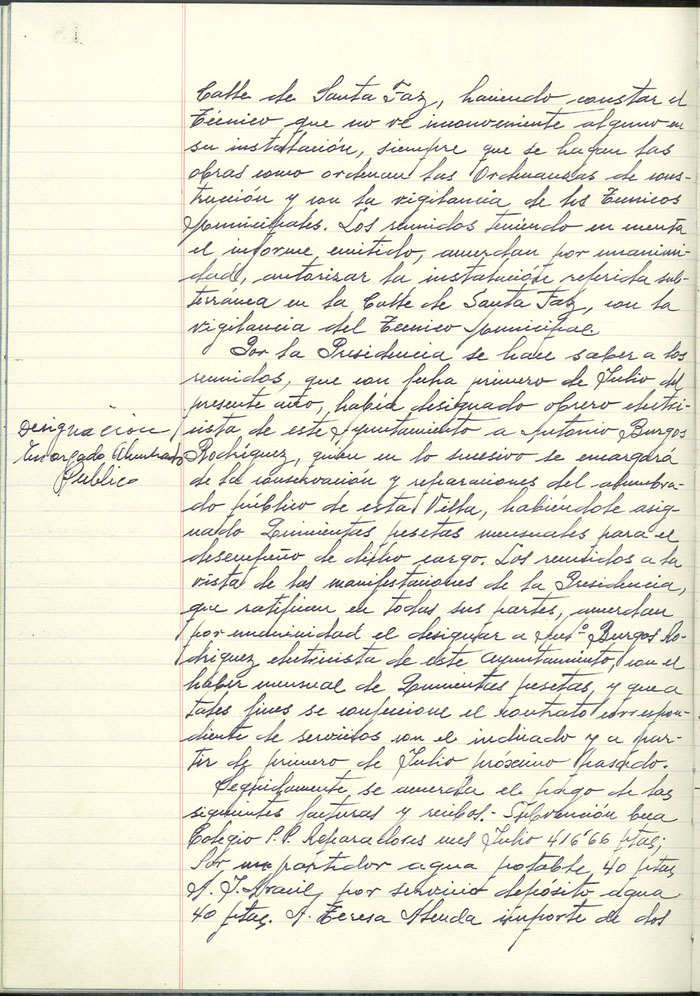 Calle de Santa Faz, haciendo constar el
Técnico que no ve inconveniente alguno en
su instalación, siempre que se hagan las
obras como ordenan las Ordenanzas de cons-
trución y con la vigilancia de los Tecnicos
Municipales. Los reunidos teniendo en cuenta
el informe emitido, acuerdan por unanimi-
dad, autorizar la instalación referida sub-
terránea en la Calle de Santa Faz, con la
vigilancia del Tecnico Municipal.
Por la Presidencia se hace saber a los
reunidos, que con fecha primero de Julio del
presente año, había designado obrero electri-
Designación
cista de este Ayuntamiento a Antonio Burgos
Encargado Alumbrado
Rodríguez, quien en lo sucesivo se encargará
Publico
de la conservación y reparaciones del alumbra-
do público de esta Villa, habiéndole asig-
nado Quinientas pesetas mensuales para el
desempeño de dicho cargo. Los reunidos a la
vista de las manifestaciones de la Presidencia,
que ratifican en todas sus partes, acuerdan
por unanimidad el designar a Antº Burgos Ro-
driguez electricista de este Ayuntamiento, con el
haber mensual de Quinientas pesetas, y que a
tales fines se confeccione el contrato correspon-
diente de servicios con el indicado y a par-
tir de primero de Julio próximo pasado.
Seguidamente, se acuerda el pago de las
siguientes facturas y recibos.- Subvención
Colegio P.P. Reparadores mes Julio 416'66 ptas;
Por un partidor agua potable, 40 ptas
A. J. por servicio depósito agua
40 ptas. A. Teresa importe de dos